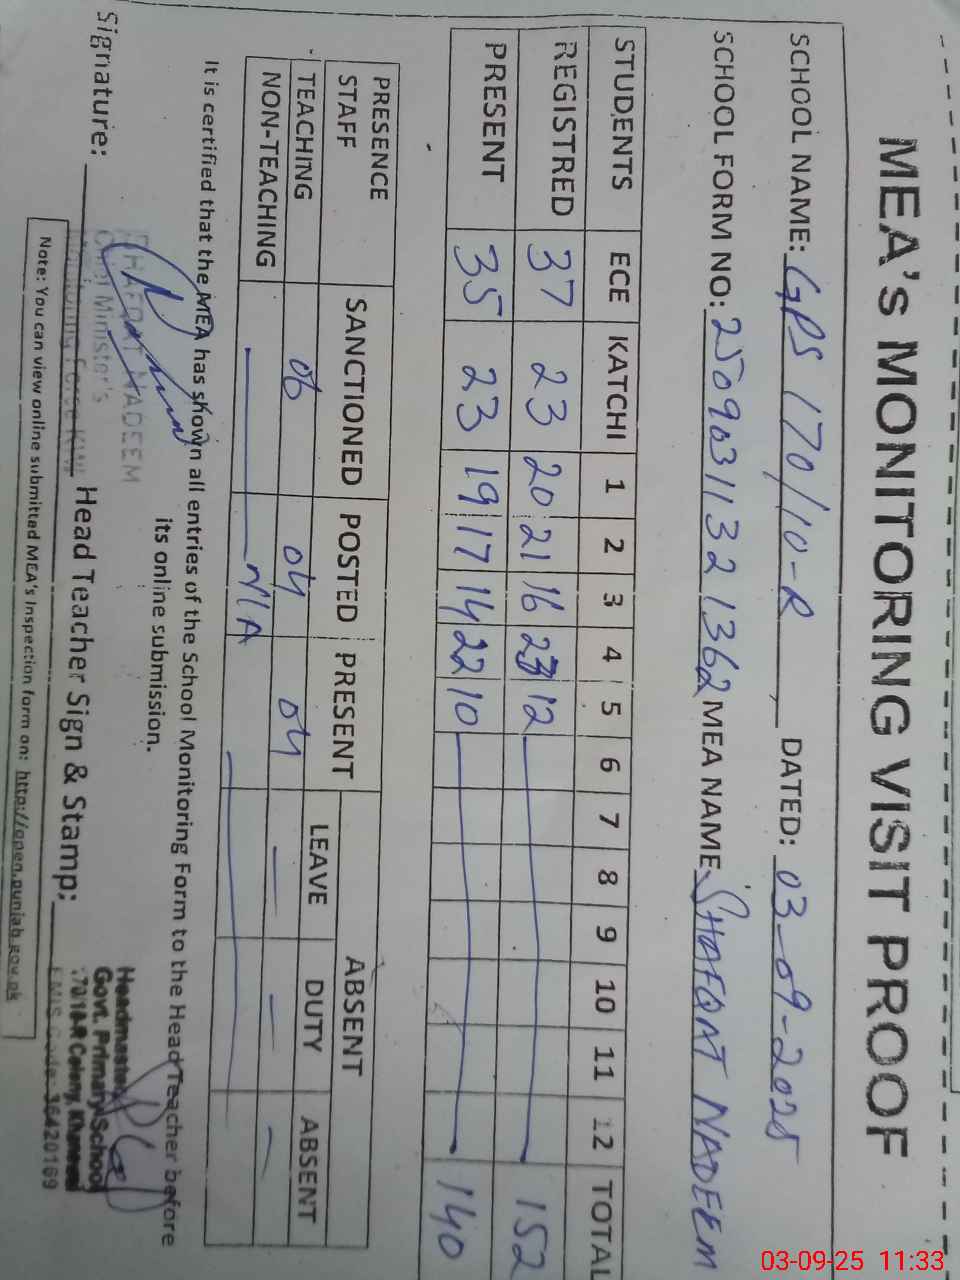 MEA's MONITORING VISIT PROOF
SCHOOL NAME: GPS 170/10-R, DATED: 03-09-2025
SCHOOL FORM NO: 2509031132 1362 MEA NAME SHAFQAT NADEEM
STUDENTS ECE KATCHI 1 2 3 4 5 6 7 8 9 10 11 12 TOTAL
REGISTRED 37 23 20 21 16 23 12 152
PRESENT 35 23 19 17 14 22 10 140
PRESENCE STAFF SANCTIONED POSTED PRESENT ABSENT
LEAVE DUTY ABSENT
TEACHING 06 04 04 — — —
NON-TEACHING N/A
It is certified that the MEA has shown all entries of the School Monitoring Form to the Head Teacher before
its online submission.
SHAFQAT NADEEM
Chief Minister's
Monitoring Force KWL
Signature: Head Teacher Sign & Stamp:
Headmaster
Govt. Primary School
170/10-R Colony, Khanewal
EMIS Code: 36420169
Note: You can view online submitted MEA's Inspection form on: http://open.punjab.gov.pk
03-09-25 11:33